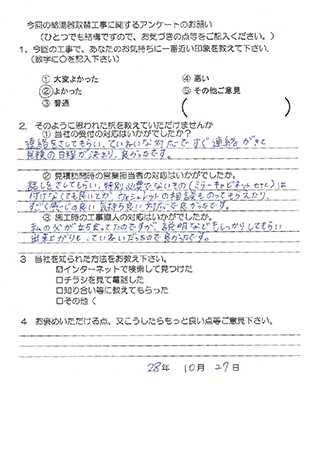 今回の給湯器取替工事に関するアンケートのお願い
(ひとつでも結構ですので、お気づきの点等をご記入ください。)
1、今回の工事で、あなたのお気持ちに一番近い印象を教えて下さい。
(数字に○を記入下さい)
① 大変よかった ④ 悪い
② よかった ⑤ その他ご意見
③ 普通 ( )
2. そのように思われた訳を教えていただけませんか
① 当社の受付の対応はいかがでしたか?
連絡をさせてもらい、ていねいな対応ですぐ連絡がきて
見積の日程が決まり、良かったです。
② 見積訪問時の営業担当者の対応はいかがでしたか?
話しをさせてもらい、特別必要でないもの(ミラーキャビネットetc)は
付けなくても良いとか、ウォシュレットの相談ものってもらえたり、
すごく感じの良い気持ち良い対応で良かったです。
③ 施工時の工事職人の対応はいかがでしたか?
私の父が立ち会ってたのですが、説明などもしっかりしてもらい
出来上がりも、ていねいだったので良かったです。
3 当社を知られた方法をお教え下さい。
☑インターネットで検索して見つけた
□チラシを見て電話した
□知り合い等に教えてもらった
□その他(
4 お褒めいただける点、又こうしたらもっと良い点等ご意見下さい。
28年 10月 27日